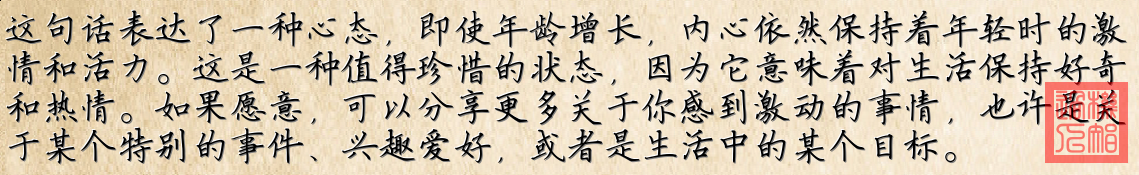 这句话表达了一种心态，即使年龄增长，内心依然保持着年轻时的激
情和活力。这是一种值得珍惜的状态，因为它意味着对生活保持好奇
和热情。如果愿意，可以分享更多关于你感到激动的事情，也许是关
于某个特别的事件、兴趣爱好，或者是生活中的某个目标。